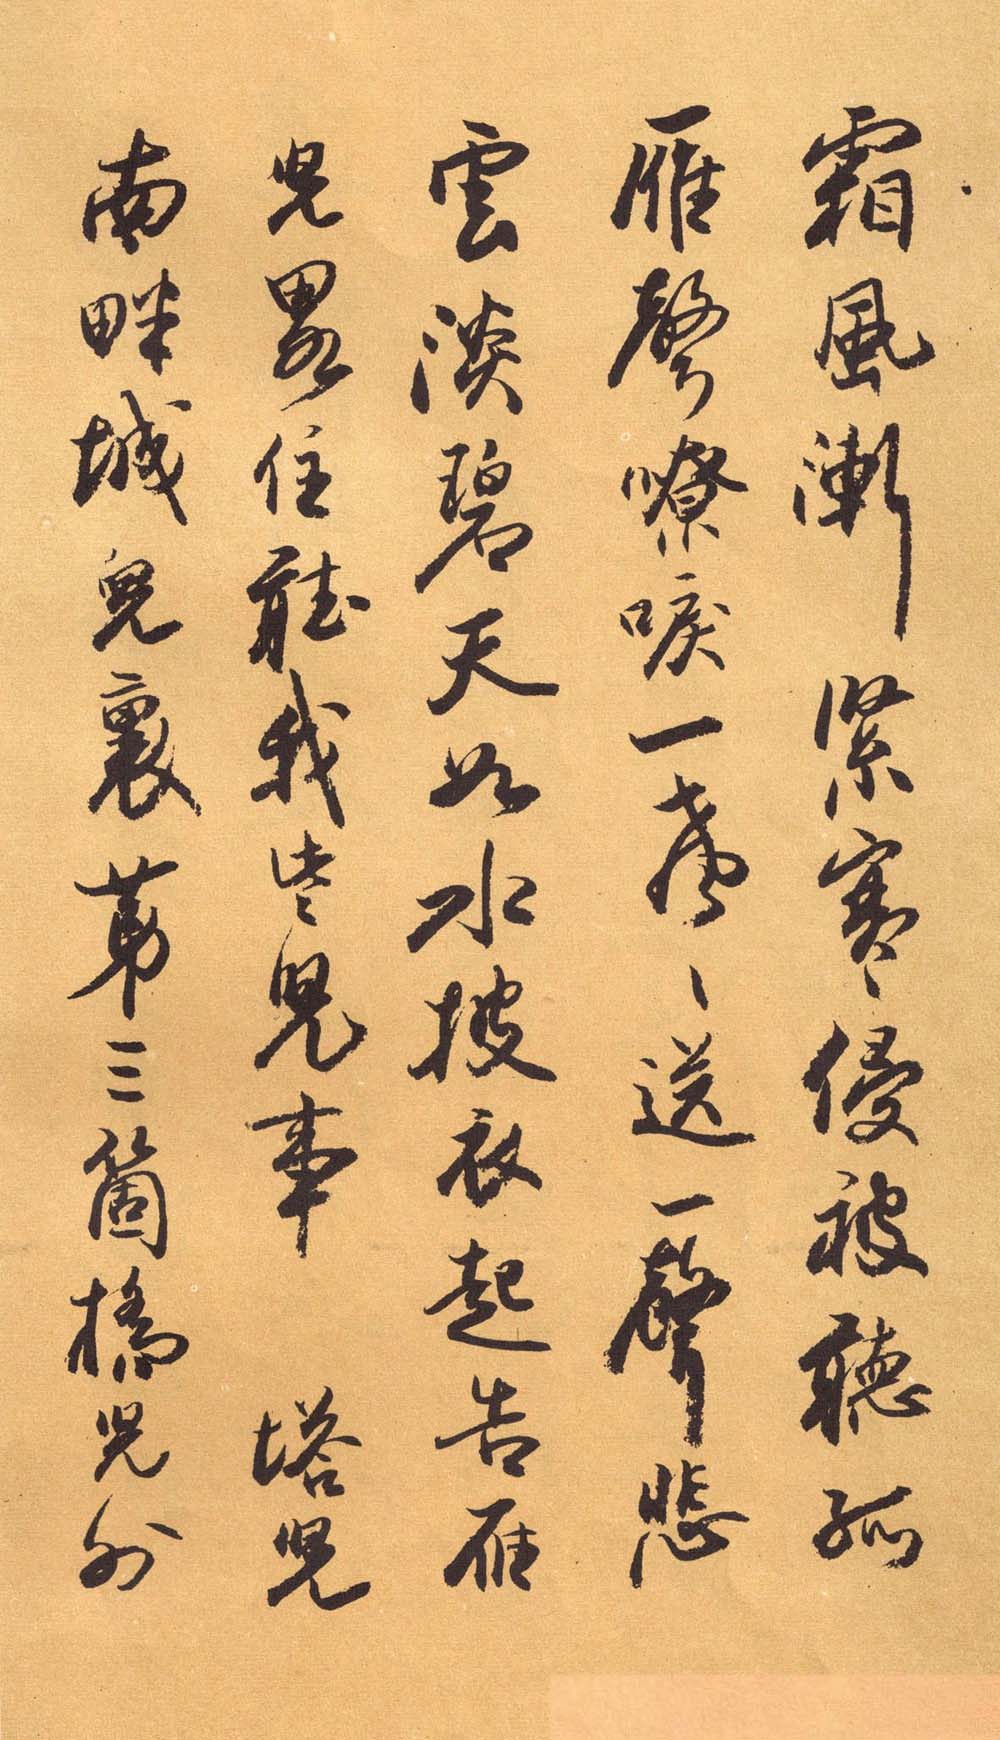 霜風漸緊寒侵被聽孤
雁聲嘹唳一聲聲送一聲悲
雲淡碧天如水披衣起告雁
兒略住聽我些兒事 塔兒
南畔城兒裏第三箇橋兒外